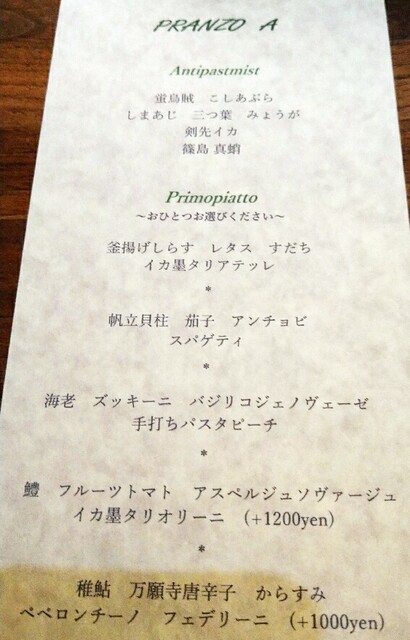 PRANZO A
Antipastmist
蛍烏賊 こしあぶら
しまあじ 三つ葉 みょうが
剣先イカ
篠島 真蛸
Primopiatto
~おひとつお選びください~
釜揚げしらす レタス すだち
イカ墨タリアテッレ
*
帆立貝柱 茄子 アンチョビ
スパゲティ
*
海老 ズッキーニ バジリコジェノヴェーゼ
手打ちパスタピーチ
*
鱧 フルーツトマト アスペルジュソヴァージュ
イカ墨タリオリーニ (+1200yen)
*
稚鮎 万願寺唐辛子 からすみ
ペペロンチーノ フェデリーニ (+1000yen)